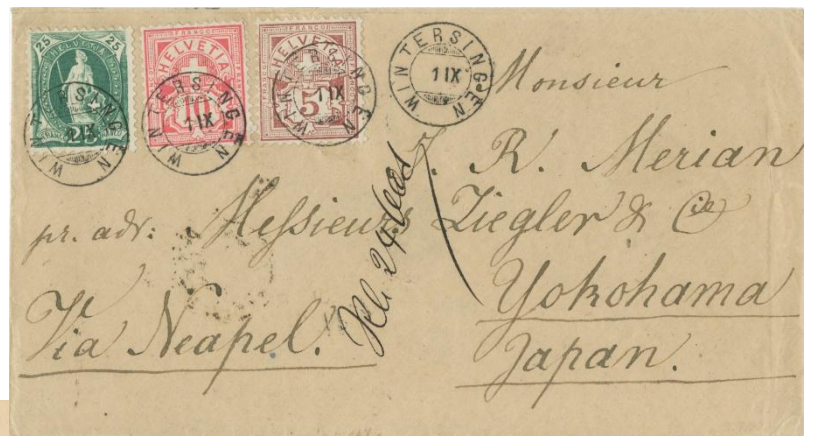 25 HELVETIA 25
25
FRANCO
HELVETIA
10
FRANCO
HELVETIA
5
WINTERSINGEN
1 IX
WINTERSINGEN
1 IX
WINTERSINGEN
1 IX
WINTERSINGEN
1 IX
Monsieur
J. R. Merian
pr. adr: Messieurs Ziegler & Cie
Yokohama
Via Neapel.
Japan.